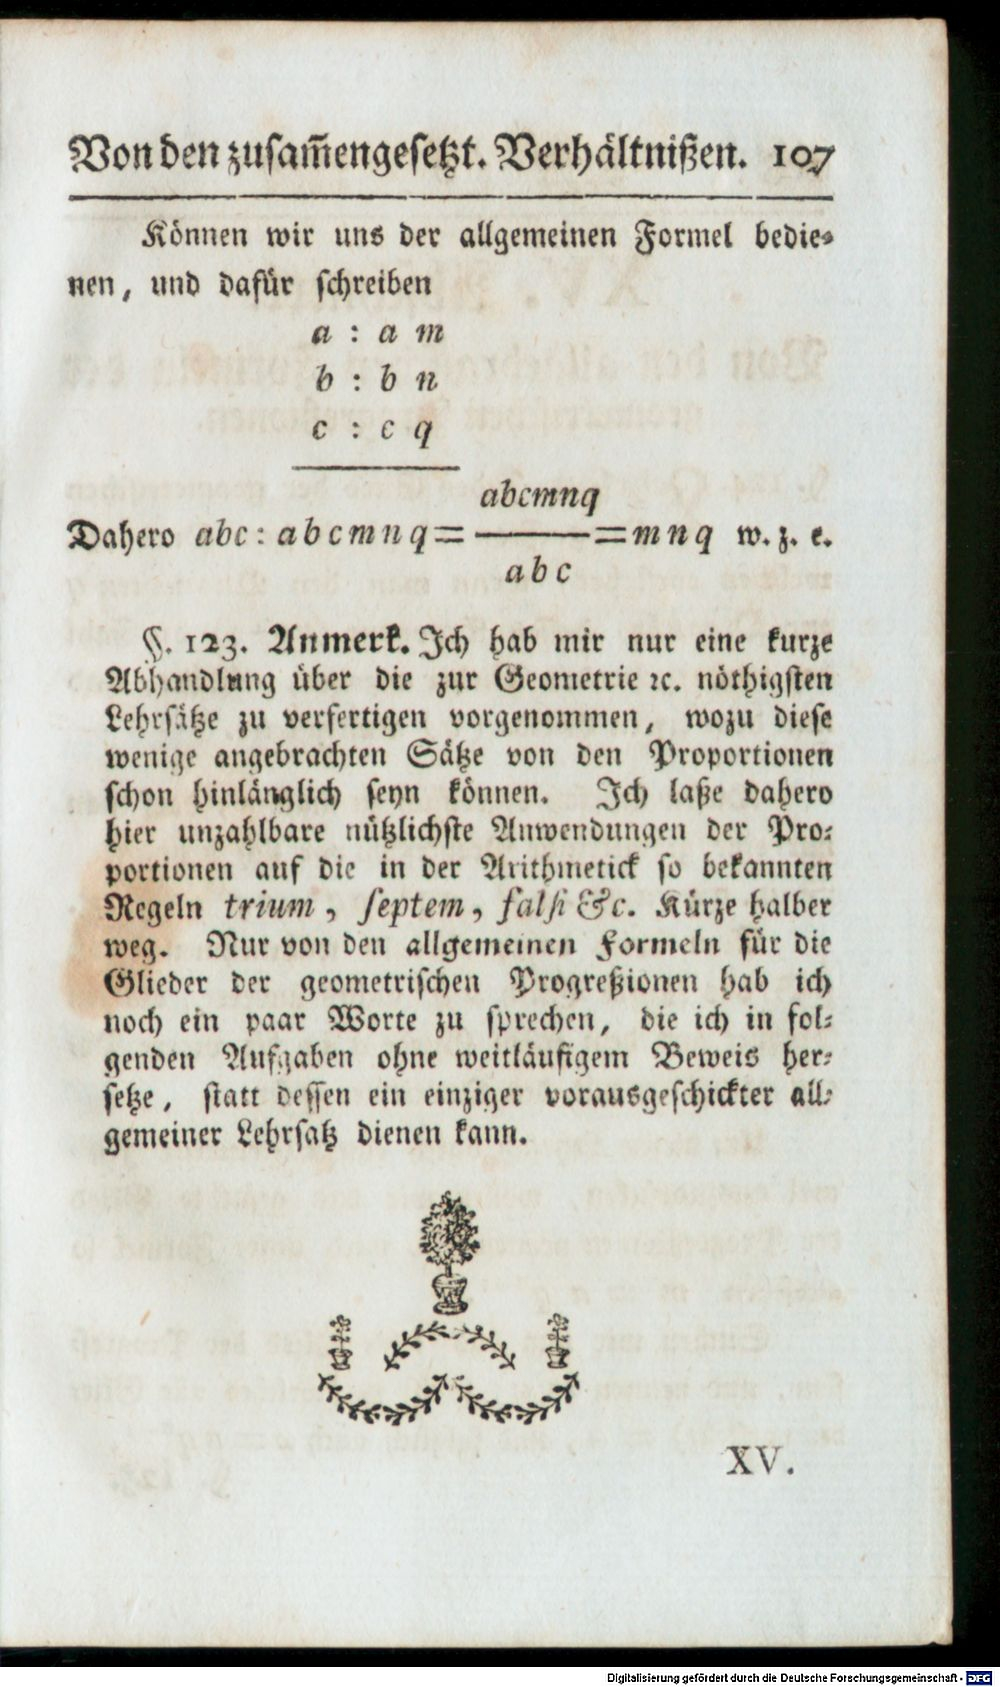 Von den zusam̅engesetzt. Verhältnißen. 107
Können wir uns der allgemeinen Formel bedie-
nen, und dafür schreiben
a : a m
b : b n
c : c q
abcmnq
Dahero abc : abcmnq = ——— = mnq w. z. e.
abc
§. 123. Anmerk. Ich hab mir nur eine kurze
Abhandlung über die zur Geometrie ꝛc. nöthigsten
Lehrsätze zu verfertigen vorgenommen, wozu diese
wenige angebrachten Sätze von den Proportionen
schon hinlänglich seyn können. Ich laße dahero
hier unzahlbare nützlichste Anwendungen der Pro-
portionen auf die in der Arithmetick so bekannten
Regeln trium, septem, falsi &c. Kürze halber
weg. Nur von den allgemeinen Formeln für die
Glieder der geometrischen Progreßionen hab ich
noch ein paar Worte zu sprechen, die ich in fol-
genden Aufgaben ohne weitläufigem Beweis her-
setze, statt dessen ein einziger vorausgeschickter all-
gemeiner Lehrsatz dienen kann.
XV.
Digitalisierung gefördert durch die Deutsche Forschungsgemeinschaft - DFG